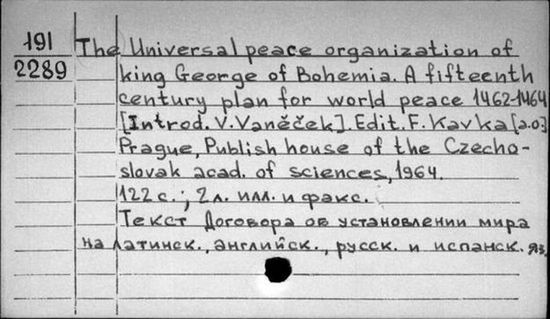 191
2289
The Universal peace organization of
king George of Bohemia. A fifteenth
century plan for world peace 1462-1464
[Introd. V. Vaněček]. Edit. F. Kavka [a.o.]
Prague, Publish house of the Czecho-
slovak acad. of sciences, 1964.
122 с.; 2 л. илл. и факс.
Текст Договора об установлении мира
на латинск., английск., русск. и испанск. яз.